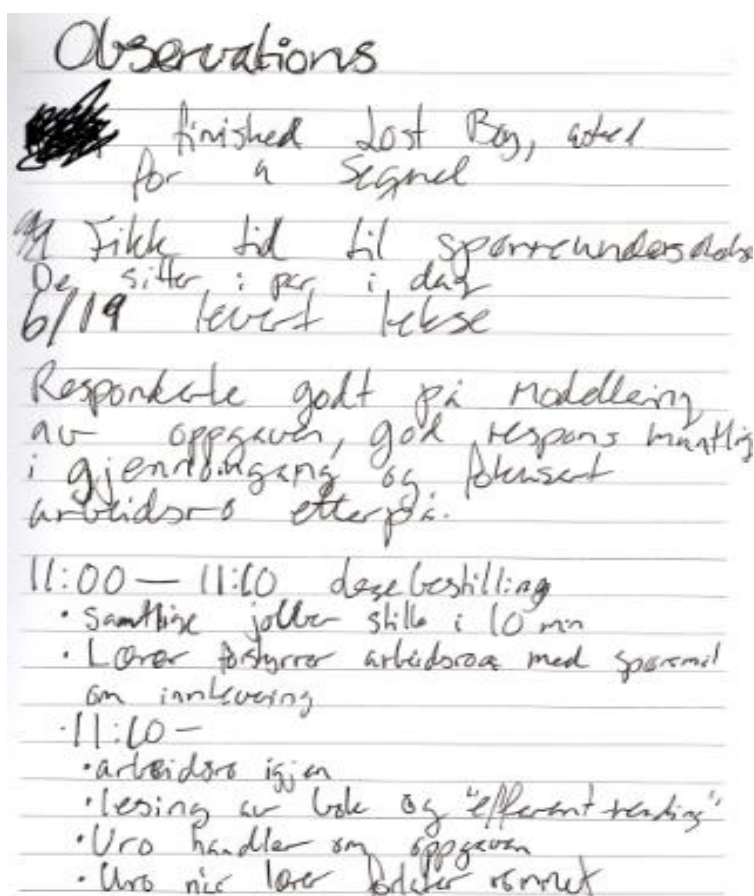 Observations
finished Lost Boy, asked
for a Seqnel
Fikk tid til spørreundersøkelse
De sitter i par i dag
6/19 levert lekse
Responderte godt på modellering
av oppgaven, god respons muntlig
i gjennomgang og fokusert
arbeidsro etterpå.
11:00 — 11:10 bestilling
• Samtlige jobber stille i 10 min
• Lærer forstyrrer arbeidsroa med spørsmål
om innlevering
• 11:10 —
• arbeidsro igjen
• lesing av bok og "efferent reading"
• Uro handler om oppgaven
• Uro når lærer forlater rommet